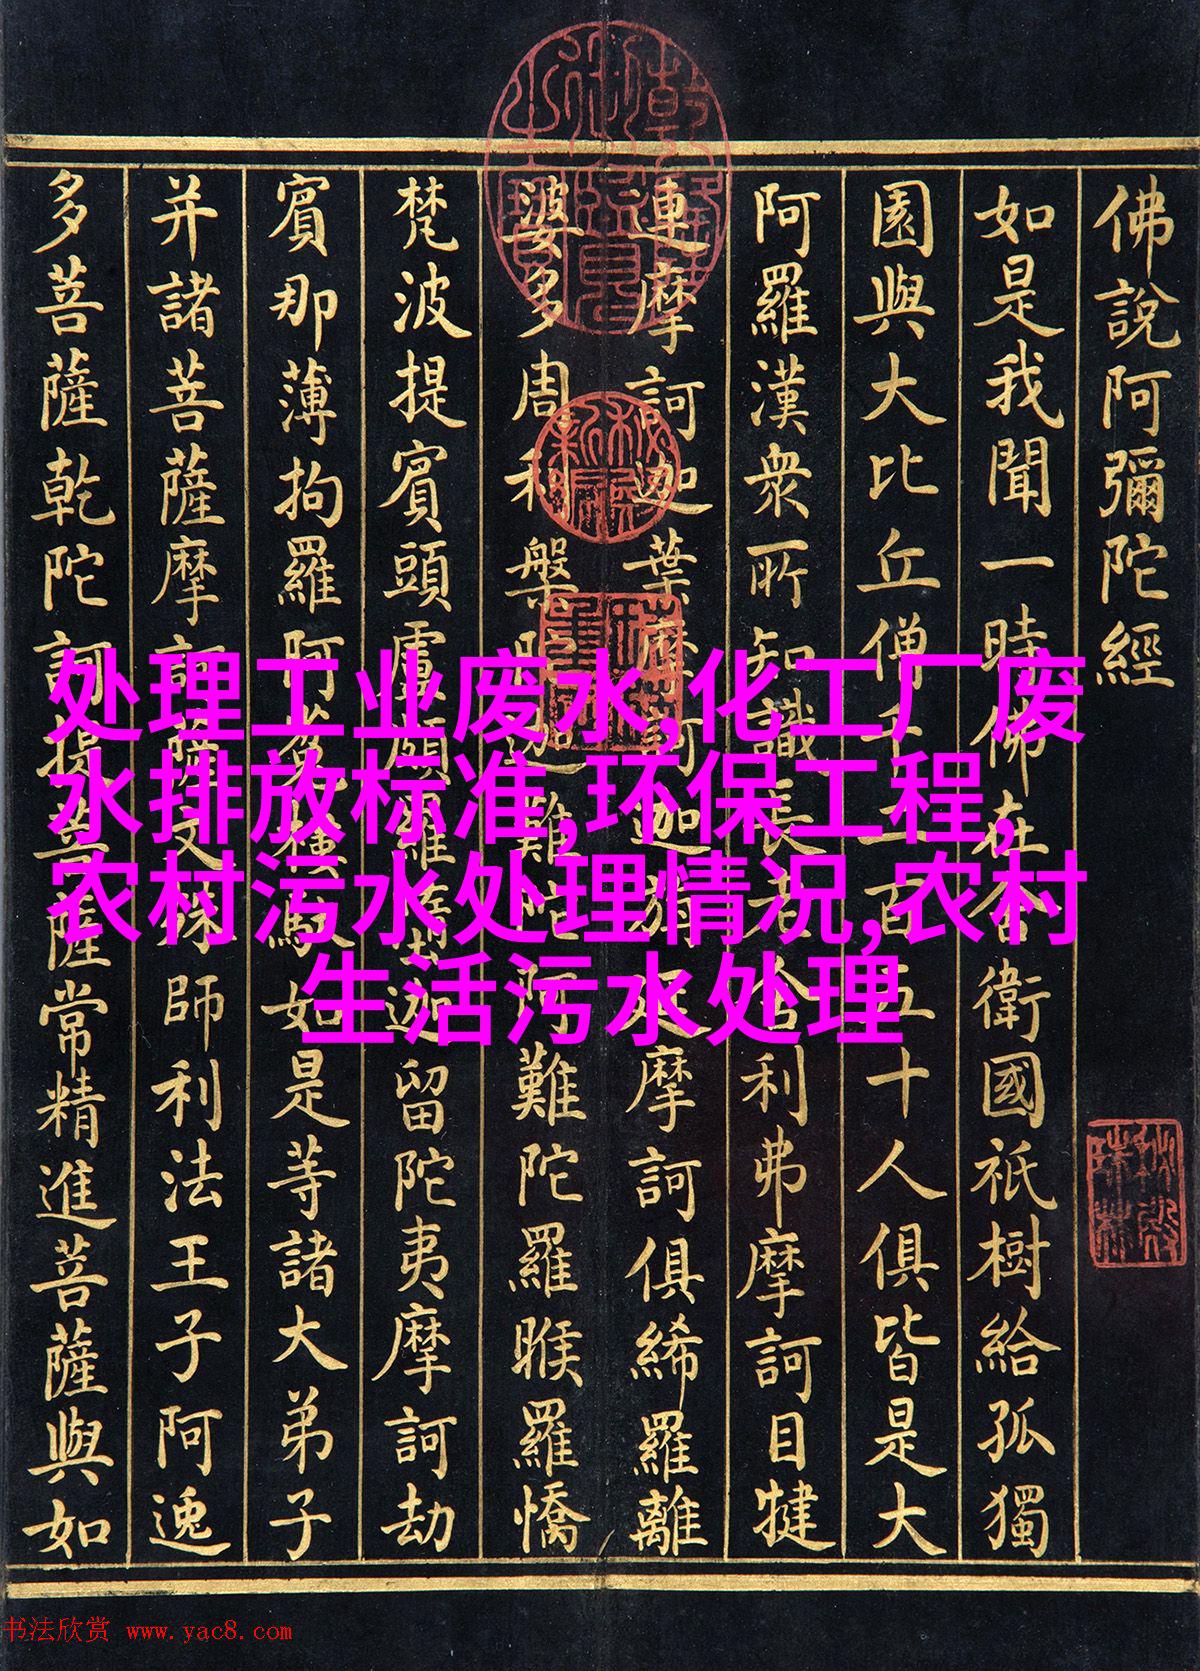 佛說阿彌陀經
如是我聞一時佛在舍衛國祇樹給孤獨
園與大比丘僧千二百五十人俱皆是大
阿羅漢衆所知識長老舍利弗摩訶目犍
連摩訶迦葉摩訶迦旃延摩訶俱絺羅離
婆多周利槃陀迦難陀阿難陀羅睺羅憍
梵波提賓頭盧頗羅墮迦留陀夷摩訶劫
賓那薄拘羅阿㝹樓馱如是等諸大弟子
并諸菩薩摩訶薩文殊師利法王子阿逸
多菩薩乾陀訶提菩薩常精進菩薩與如
处理工业废水,化工厂废
水排放标准,环保工程,
农村污水处理情况,农村
生活污水处理
书法欣赏 www.yac8.com